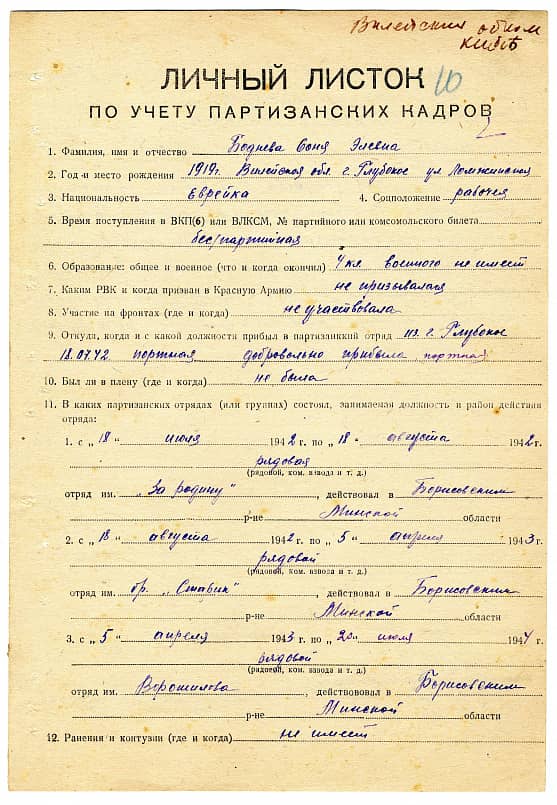 Вилейский обком
КП(б)Б
ЛИЧНЫЙ ЛИСТОК 10
ПО УЧЕТУ ПАРТИЗАНСКИХ КАДРОВ
1. Фамилия, имя и отчество Боднева Соня Элевна
2. Год и место рождения 1919г. Вилейская обл. г. Глубокое ул Ломжинская
3. Национальность Еврейка 4. Соцположение рабочая
5. Время поступления в ВКП(б) или ВЛКСМ, № партийного или комсомольского билета
бес/партийная
6. Образование: общее и военное (что и когда окончил) 4 кл военного не имеет
7. Каким РВК и когда призван в Красную Армию не призывалася
8. Участие на фронтах (где и когда) не участвовала
9. Откуда, когда и с какой должности прибыл в партизанский отряд из г. Глубокое
18.07.42 портная добровольно прибыла портная
10. Был ли в плену (где и когда) не была
11. В каких партизанских отрядах (или группах) состоял, занимаемая должность и район действия
отряда:
1. с „18" июля 1942 г по „18" августа 1942 г.
рядовая
(рядовой, ком. взвода и т. д.)
отряд им. „За родину", действовал в Борисовским
р-не Минской области
2. с „18" августа 1942 г по „5" апреля 1943 г.
рядовой
(рядовой, ком. взвода и т. д.)
отряд им. бр. „Ставик", действовал в Борисовским
р-не Минской области
3. с „5" апреля 1943 г по „20" июля 1944 г.
рядовой
(рядовой, ком. взвода и т. д.)
отряд им. Ворошилова, действовал в Борисовским
р-не Минской области
12. Ранения и контузии (где и когда) не имеет